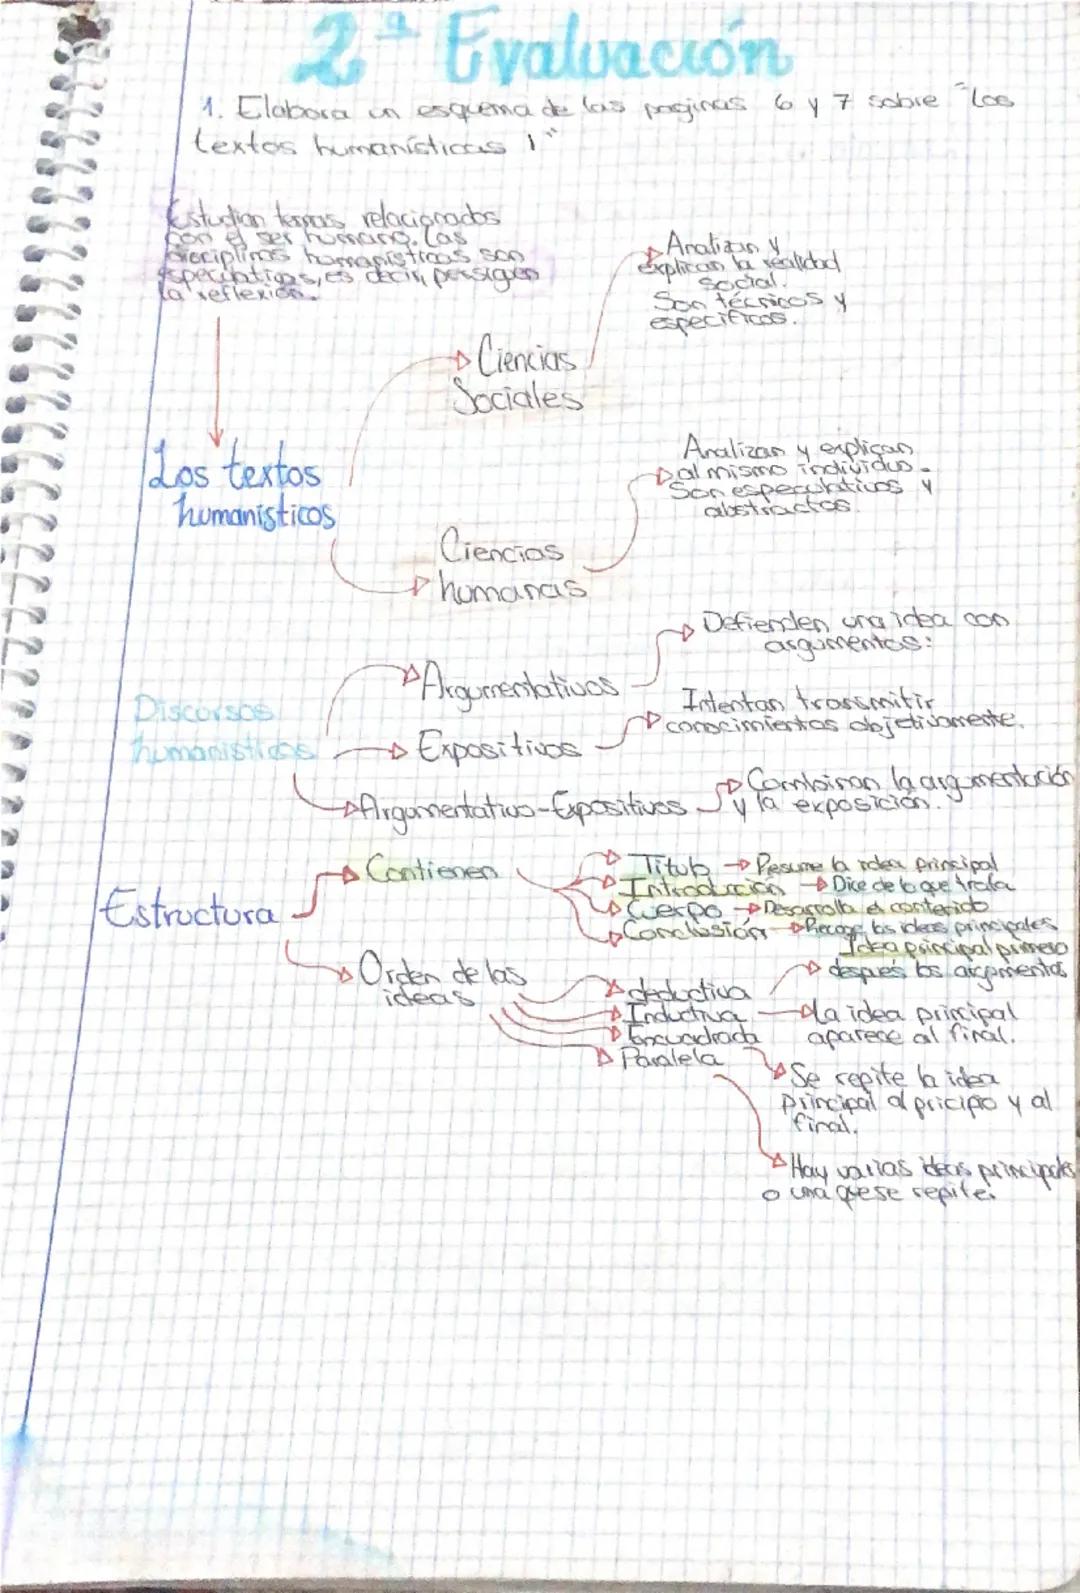 2ª Evaluación
1. Elabora un esquema de las paginas 6 y 7 sobre "Los
textos humanísticos 1"
Estudian temas relacionados
con el ser humano. Las
disciplinas humanísticas son
especulativas, es decir, persiguen
la reflexión.
Analizan y
explican la realidad
social.
Son técnicos y
específicos.
Ciencias
Sociales
Los textos
humanísticos
Analizan y explican
al mismo individuo.
Son especulativos y
abstractos.
Ciencias
humanas
Defienden una idea con
argumentos:
Argumentativos
Discursos
humanísticos
Intentan transmitir
conocimientos objetivamente.
Expositivos
Argumentativo-Expositivos
Combinan la argumentación
y la exposición.
Contienen
Estructura
Titulo Resume la idea principal
Introducción Dice de lo que trata
Cuerpo Desarrolla el contenido
Conclusión Recoge las ideas principales
Orden de las
ideas
Idea principal primero
después los argumentos
deductiva
Inductiva La idea principal
aparece al final.
Encuadrada
Paralela
Se repite la idea
principal al pricipio y al
final.
Hay varias ideas principales
o una que se repite.